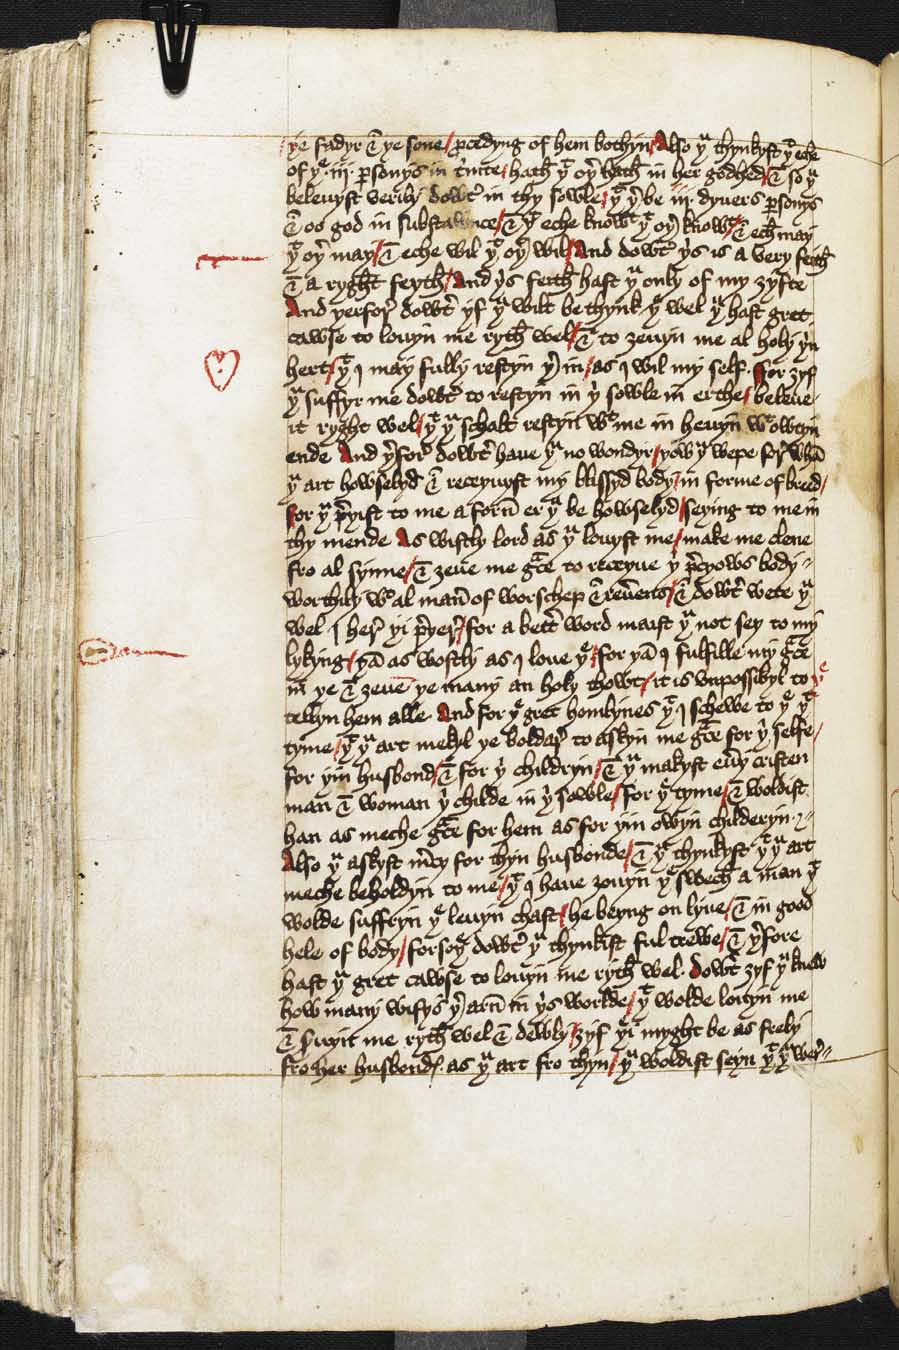 ye fadyr & ye sone / pcedyng of hem bothyn / Also yu thynkyst yt eche
of ye iij psonys in t'nite / hath yt oyr hath in her godhed / & so yu
beleuyst verily dowt' in thy sowle / yt yr be iij dyuers psonys
& oo god in substawnce / & yt eche knowt yt oyr knowt / & ech may
yt oyr may / & eche wil yt oyr wil / And dowt' ys is a very feith
& a ryght feyth / And ys feith hast yu only of my zyfte
And yerfor dowt' yf yu wilt be thynk ye wel yu hast gret
cawse to louyn me ryth wel / & to zeuyn me al holy yin
hert / yt I may fully restyn yrin / as I wil my self. For zyf
yu suffyr me dowt' to restyn in yi sowle in erthe / beleue
it ryght wel / yt yu schalt restyn wt me in heuyn wtowtyn
ende And yrfor dowt' haue yu no wondyr / yow yu wepe sor whā
yu art howselyd & receyuyst my blissyd body in forme of breed /
for yu pyist to me a forn er yu be howselyd / seying to me in
thy mende As wistly lord as yu louyst me / make me clene
fro al synne / & zeue me gce to receyue yi pcyows body
worthily wt al man of worschep & reuens / & dowt' wete yu
wel I her yi pyer / for a bett' word maist yu not sey to my
lykyng / yā as wostly as I loue ye / for yā I fulfille my gce
in ye & zeue ye many an holy thowt / it is vnpossibyl to
tellyn hem alle. And for ye gret homlynes yt I schewe to ye yt
tyme / yt yu art mekyl ye boldar to askyn me gce for yi selfe /
for yin husbond / & for yi childryn / & yu makyst eu'y cristen
man & woman yi childe in yi sowle / for ye tyme / & woldist
han as meche gce for hem as for yin owyn childeryn.
Also yu askyst m'cy for thyn husbonde / & yu thynkyst yt yu art
meche beholdyn to me / yt I haue zouyn ye swech a man yt
wolde suffryn ye leuyn chast / he beyng on lyue / & in good
hele of body / forsoy dowt' yu thynkist ful trewe / & yrfore
hast yu gret cawse to louyn me ryth wel. Dowt' zyf yu knew
how many wifys yr arn in ys worlde / yt wolde louyn me
& suyn me ryth wel & dewly / zyf yei myght be as frely
fro her husbond. as yu art fro thyn / yu woldist seyn yt yei wer